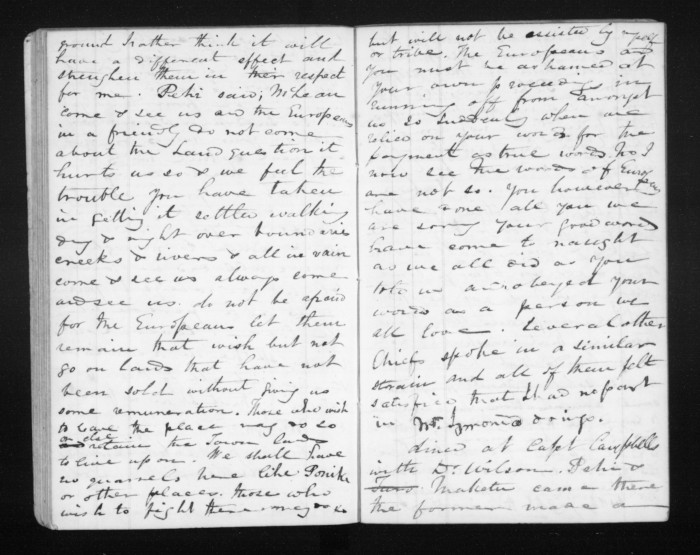 ground I rather think it will
have a different effect and
strengthen them in their respect
for me. Pehi said, McLean
come & see us and the Europeans
in a friendly do not come
about the Land question it
hurts us so & we feel the
trouble you have taken
in getting it settled walking
day & night over boundaries
creeks & rivers & all in vain
come & see us always come
and see us. do not be afraid
for the Europeans let them
remain that wish but not
go on lands that have not
been sold without giving us
some remuneration. Those who wish
to leave the place may do so
or else retain the Town land
to live upon. We shall have
no quarrels here like
or other places. those who
wish to fight there may do so
but will not be assisted by my
or tribe. The Europeans and
you must be ashamed at
your own proceedings in
running off from amongst
us so suddenly when we
relied on your word for the
payment as true words. No I
now see the words of Europeans
are not so. You however
have done all you we
are sorry your good words
have come to naught
as we all did as you
told us acknowledged your
words as a person we
all love. Several other
Chiefs spoke in a similar
strain and all of them felt
satisfied that I had no part
in Mr. doings.
dined at Capt Campbells
with Dr. Wilson. Pehi &
Maketu came there
the former made a